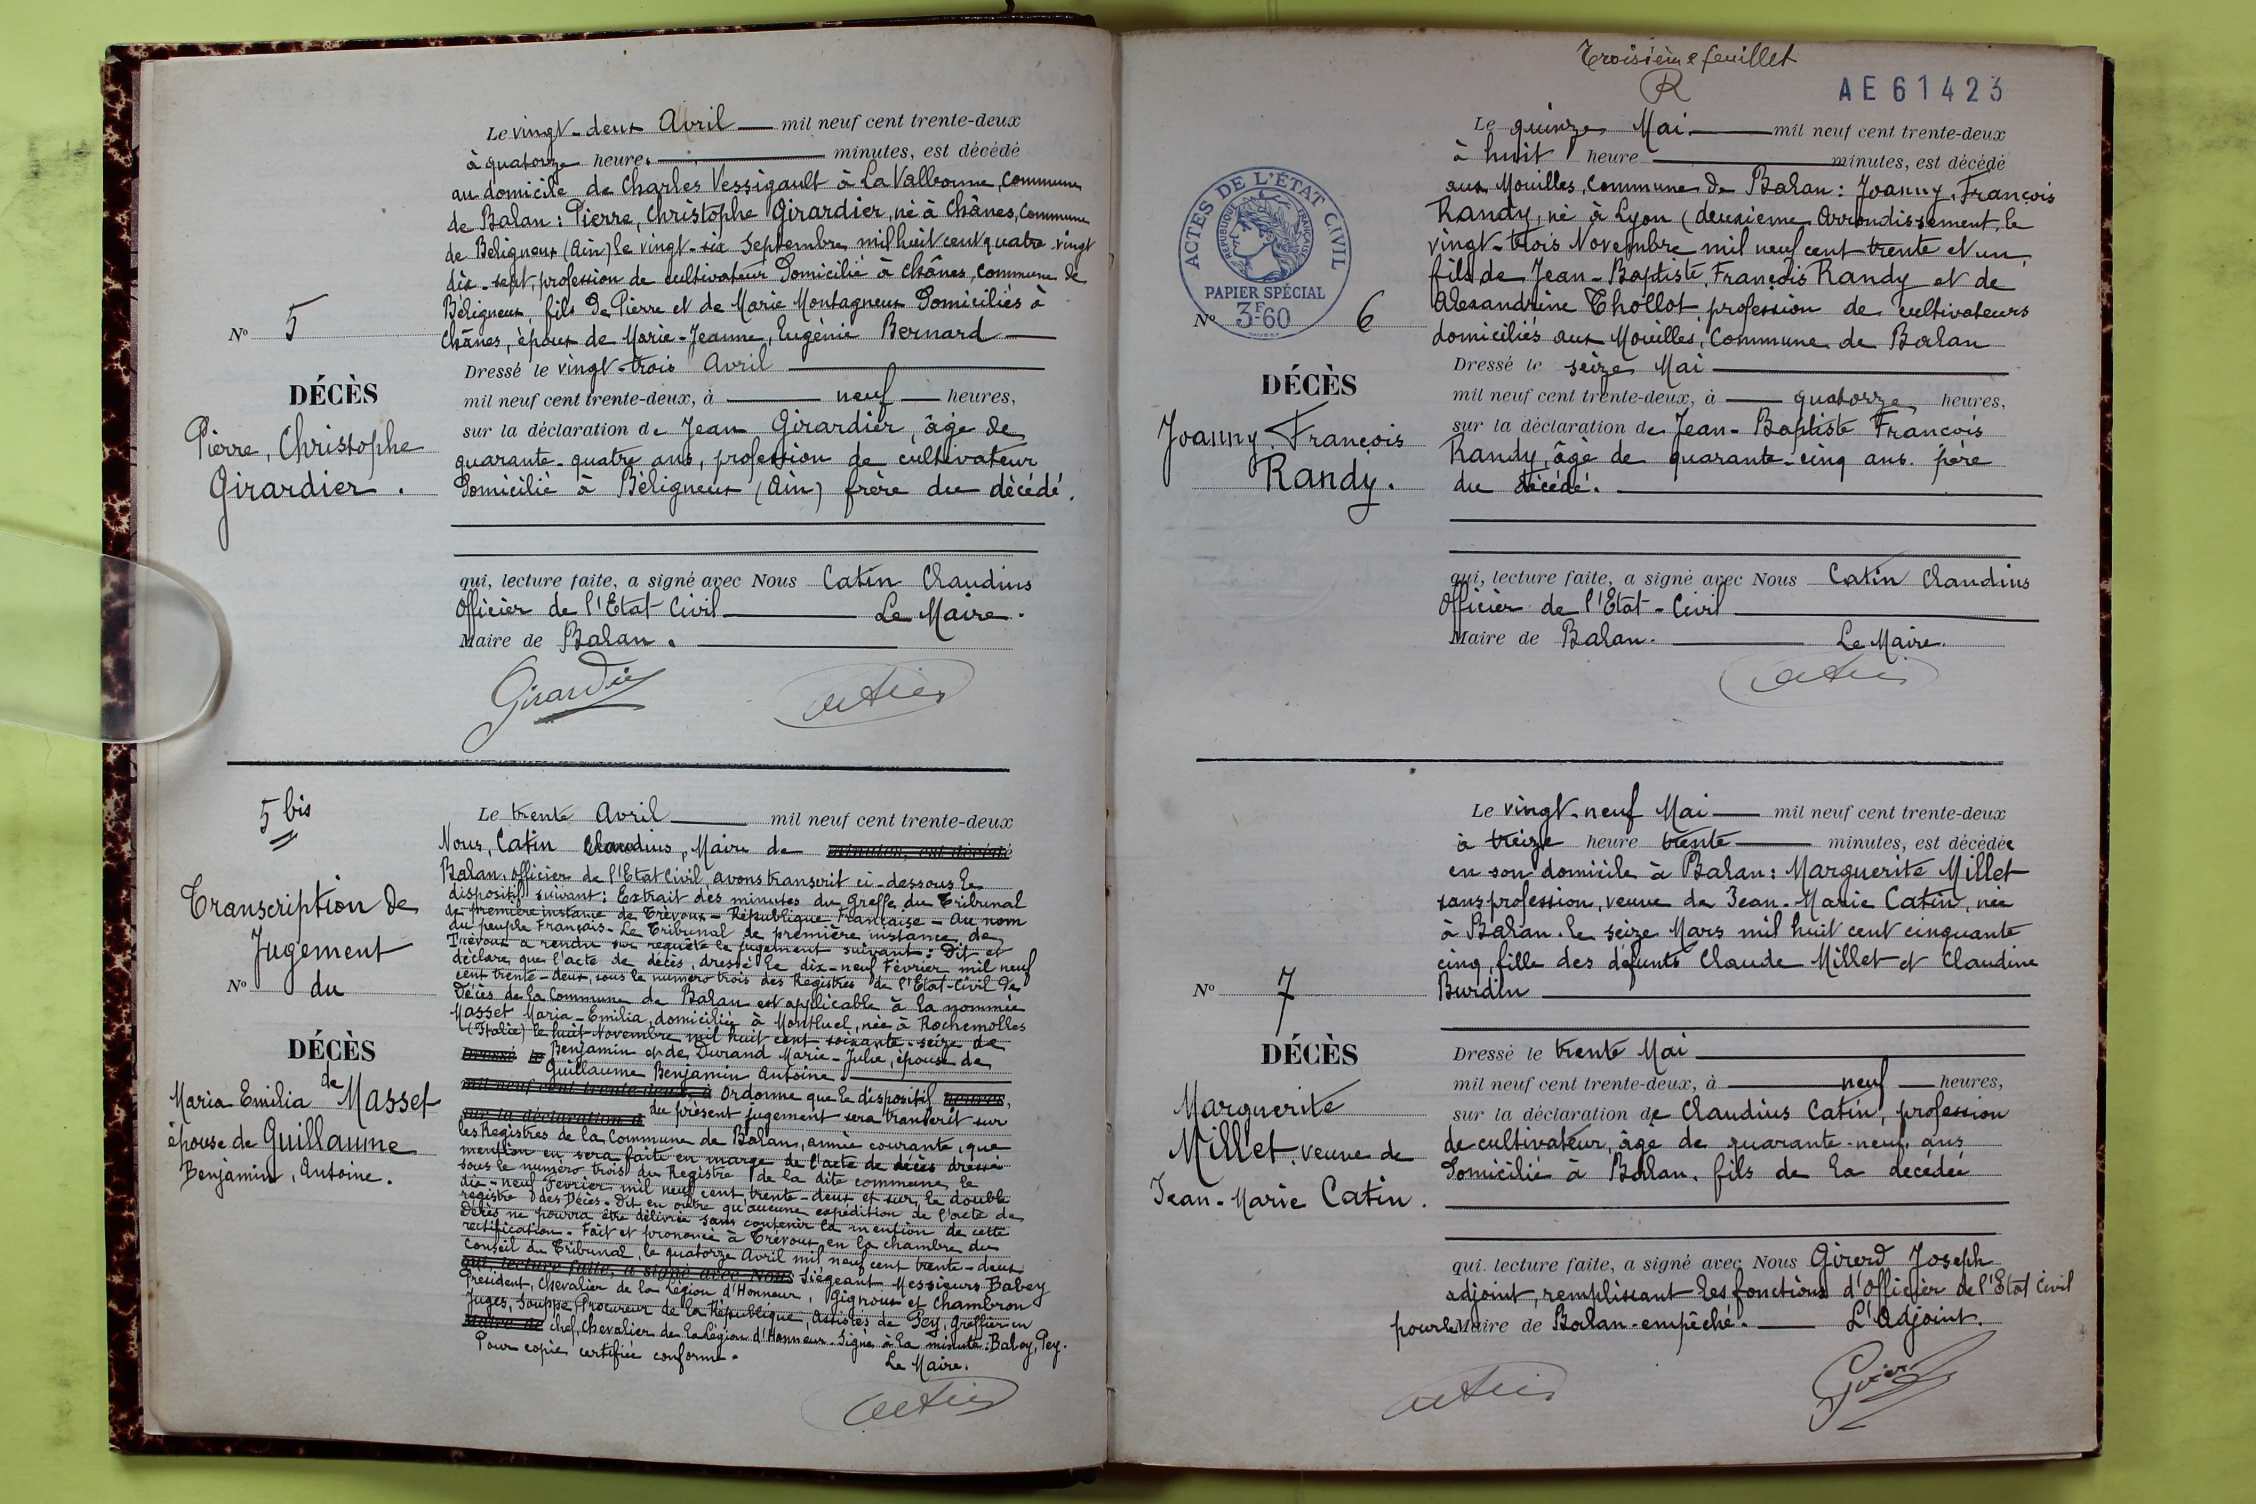 Le vingt-deux Avril mil neuf cent trente-deux
à quatorze heures minutes, est décédé
au domicile de Charles Vessigault à La Valbonne, commune
de Balan : Pierre, Christophe Girardier, né à Chânes, commune
de Béligneux (Ain) le vingt-six Septembre mil huit cent quatre-vingt
dix-sept, profession de cultivateur Domicilié à Chânes, commune de
Béligneux, fils de Pierre et de Marie Montagneux Domiciliés à
Chânes, époux de Marie-Jeanne, Eugénie Bernard
Nº 5
Dressé le vingt-trois Avril
DÉCÈS
mil neuf cent trente-deux, à neuf heures,
Pierre, Christophe
Girardier.
sur la déclaration de Jean Girardier, âgé de
quarante-quatre ans, profession de cultivateur
Domicilié à Béligneux (Ain) frère du décédé.
qui, lecture faite, a signé avec Nous Catin Claudius
Officier de l'Etat Civil Le Maire.
Maire de Balan.
Girardier Catin
5 bis
Transcription de
Jugement
Nº du
DÉCÈS
de
Maria Emilia Masset
épouse de Guillaume
Benjamin, Antoine.
Le trente Avril mil neuf cent trente-deux
Nous, Catin Claudius, Maire de minutes, est décédé
Balan, officier de l'Etat Civil, avons transcrit ci-dessous le
dispositif suivant : Extrait des minutes du Greffe du Tribunal
de première instance de Trévoux - République Française - Au nom
du peuple Français - Le Tribunal de première instance de
Trévoux a rendu sur requête le jugement suivant : Dit et
déclare que l'acte de décès, dressé le dix-neuf Février mil neuf
cent trente-deux, sous le numéro trois des Registres de l'Etat-Civil des
Décès de la Commune de Balan est applicable à la nommée
Masset Maria-Emilia, domiciliée à Montluel, née à Rochemolles
(Italie) le huit Novembre mil huit cent soixante-seize de
Dressé le Benjamin et de Durand Marie-Julie, épouse de
Guillaume Benjamin Antoine.
mil neuf cent trente-deux, à Ordonne que le dispositif heures,
sur la déclaration d du présent jugement sera transcrit sur
les Registres de la Commune de Balan, année courante, que
mention en sera faite en marge de l'acte de décès dressé
sous le numéro trois du Registre de la dite commune le
dix-neuf Février mil neuf cent trente-deux et sur le double
registre des Décès. Dit en outre qu'aucune expédition de l'acte de
Décès ne pourra être délivrée sans contenir la mention de cette
rectification. Fait et prononcé à Trévoux, en la chambre du
Conseil du Tribunal, le quatorze Avril mil neuf cent trente-deux
qui, lecture faite, a signé avec Nous Siégeant Messieurs Babey
Président, Chevalier de la Légion d'Honneur, Gignoux et Chambron
Juges, Souppe, Procureur de la République, Assistés de Pey, Greffier en
Maire de chef, Chevalier de la Légion d'Honneur. Signé à la minute : Babey, Pey.
Pour copie certifiée conforme.
Le Maire.
Catin
Troisième feuillet
R
AE 61423
ACTES DE L'ÉTAT CIVIL
RÉPUBLIQUE FRANÇAISE
PAPIER SPÉCIAL
3F60
Le quinze Mai mil neuf cent trente-deux
à huit heure minutes, est décédé
aux Mouilles, Commune de Balan : Joanny, François
Randy, né à Lyon (deuxième Arrondissement, le
vingt-trois Novembre mil neuf cent trente et un,
fils de Jean-Baptiste, François Randy et de
Alexandrine Thollot, profession de cultivateurs
domiciliés aux Mouilles, Commune de Balan
Nº 6
Dressé le seize Mai
DÉCÈS
mil neuf cent trente-deux, à quatorze heures,
Joanny, François
Randy.
sur la déclaration de Jean-Baptiste François
Randy, âgé de quarante-cinq ans. père
du décédé.
qui, lecture faite, a signé avec Nous Catin Claudius
Officier de l'Etat-Civil
Maire de Balan. Le Maire.
Catin
Le vingt-neuf Mai mil neuf cent trente-deux
à treize heure trente minutes, est décédée
en son domicile à Balan : Marguerite Millet
sans profession, veuve de Jean-Marie Catin, née
à Balan. le seize Mars mil huit cent cinquante
cinq, fille des défunts Claude Millet et Claudine
Burdin
Nº 7
DÉCÈS
Marguerite
Millet, veuve de
Jean-Marie Catin.
Dressé le trente Mai
mil neuf cent trente-deux, à neuf heures,
sur la déclaration de Claudius Catin, profession
de cultivateur, âgé de quarante-neuf ans
Domicilié à Balan, fils de la décédée
qui, lecture faite, a signé avec Nous Girerd Joseph
adjoint, remplissant les fonctions d'Officier de l'Etat Civil
pour le Maire de Balan-empêché. L'Adjoint.
Catin Girerd